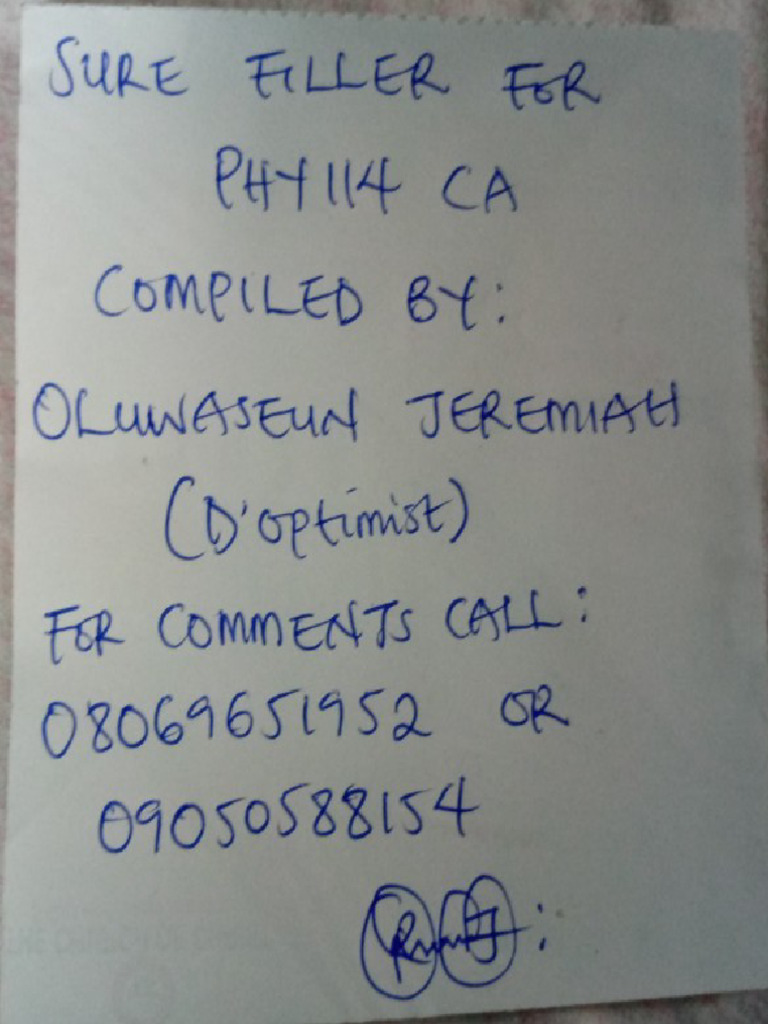 SURE FILLER FOR
PHY 114 CA
COMPILED BY:
OLUWASEUN JEREMIAH
(D'optimist)
FOR COMMENTS CALL:
08069651952 OR
09050588154